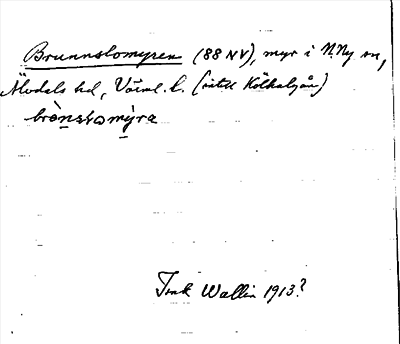 Brunnslomyren (88 NV), myr i N. Ny sn,
Älvdals hd, Värml. l. (intill Kölkalsjön)
brònslomỳra
Tink Wallin 1913?